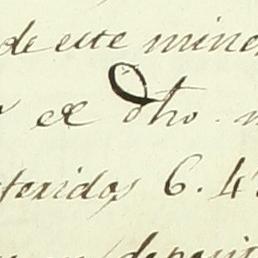 de este mine
el dho. n
feridos 6. 4
deposit